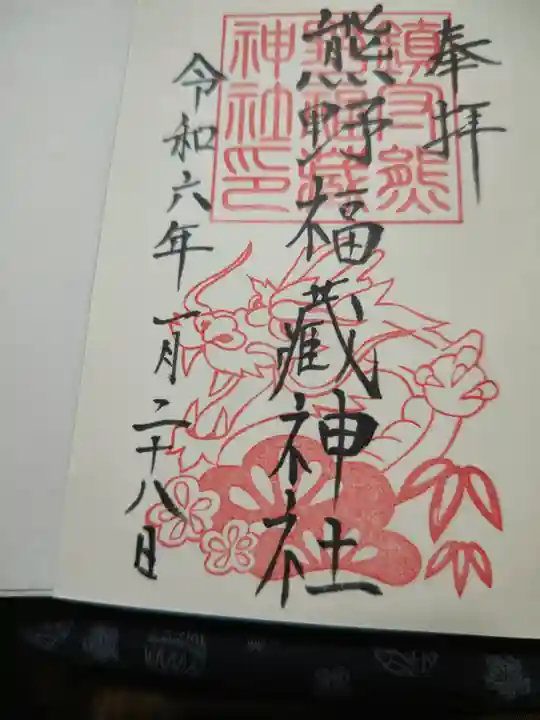 奉拝
熊野福藏神社
令和六年一月二十八日
鎮守熊
野福藏
神社印